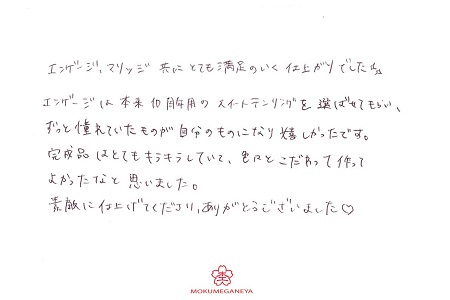 エンゲージ、マリッジ 共に とても 満足のいく 仕上がりでした♪
エンゲージは 本来 10周年用の スイートテンリングを 選ばせてもらい、
ずっと憧れていたものが 自分のものになり 嬉しかったです。
完成品 はとても キラキラしていて、色々と こだわって 作って
よかったなと 思いました。
素敵に 仕上げてくださり、ありがとうございました♡
MOKUMEGANEYA